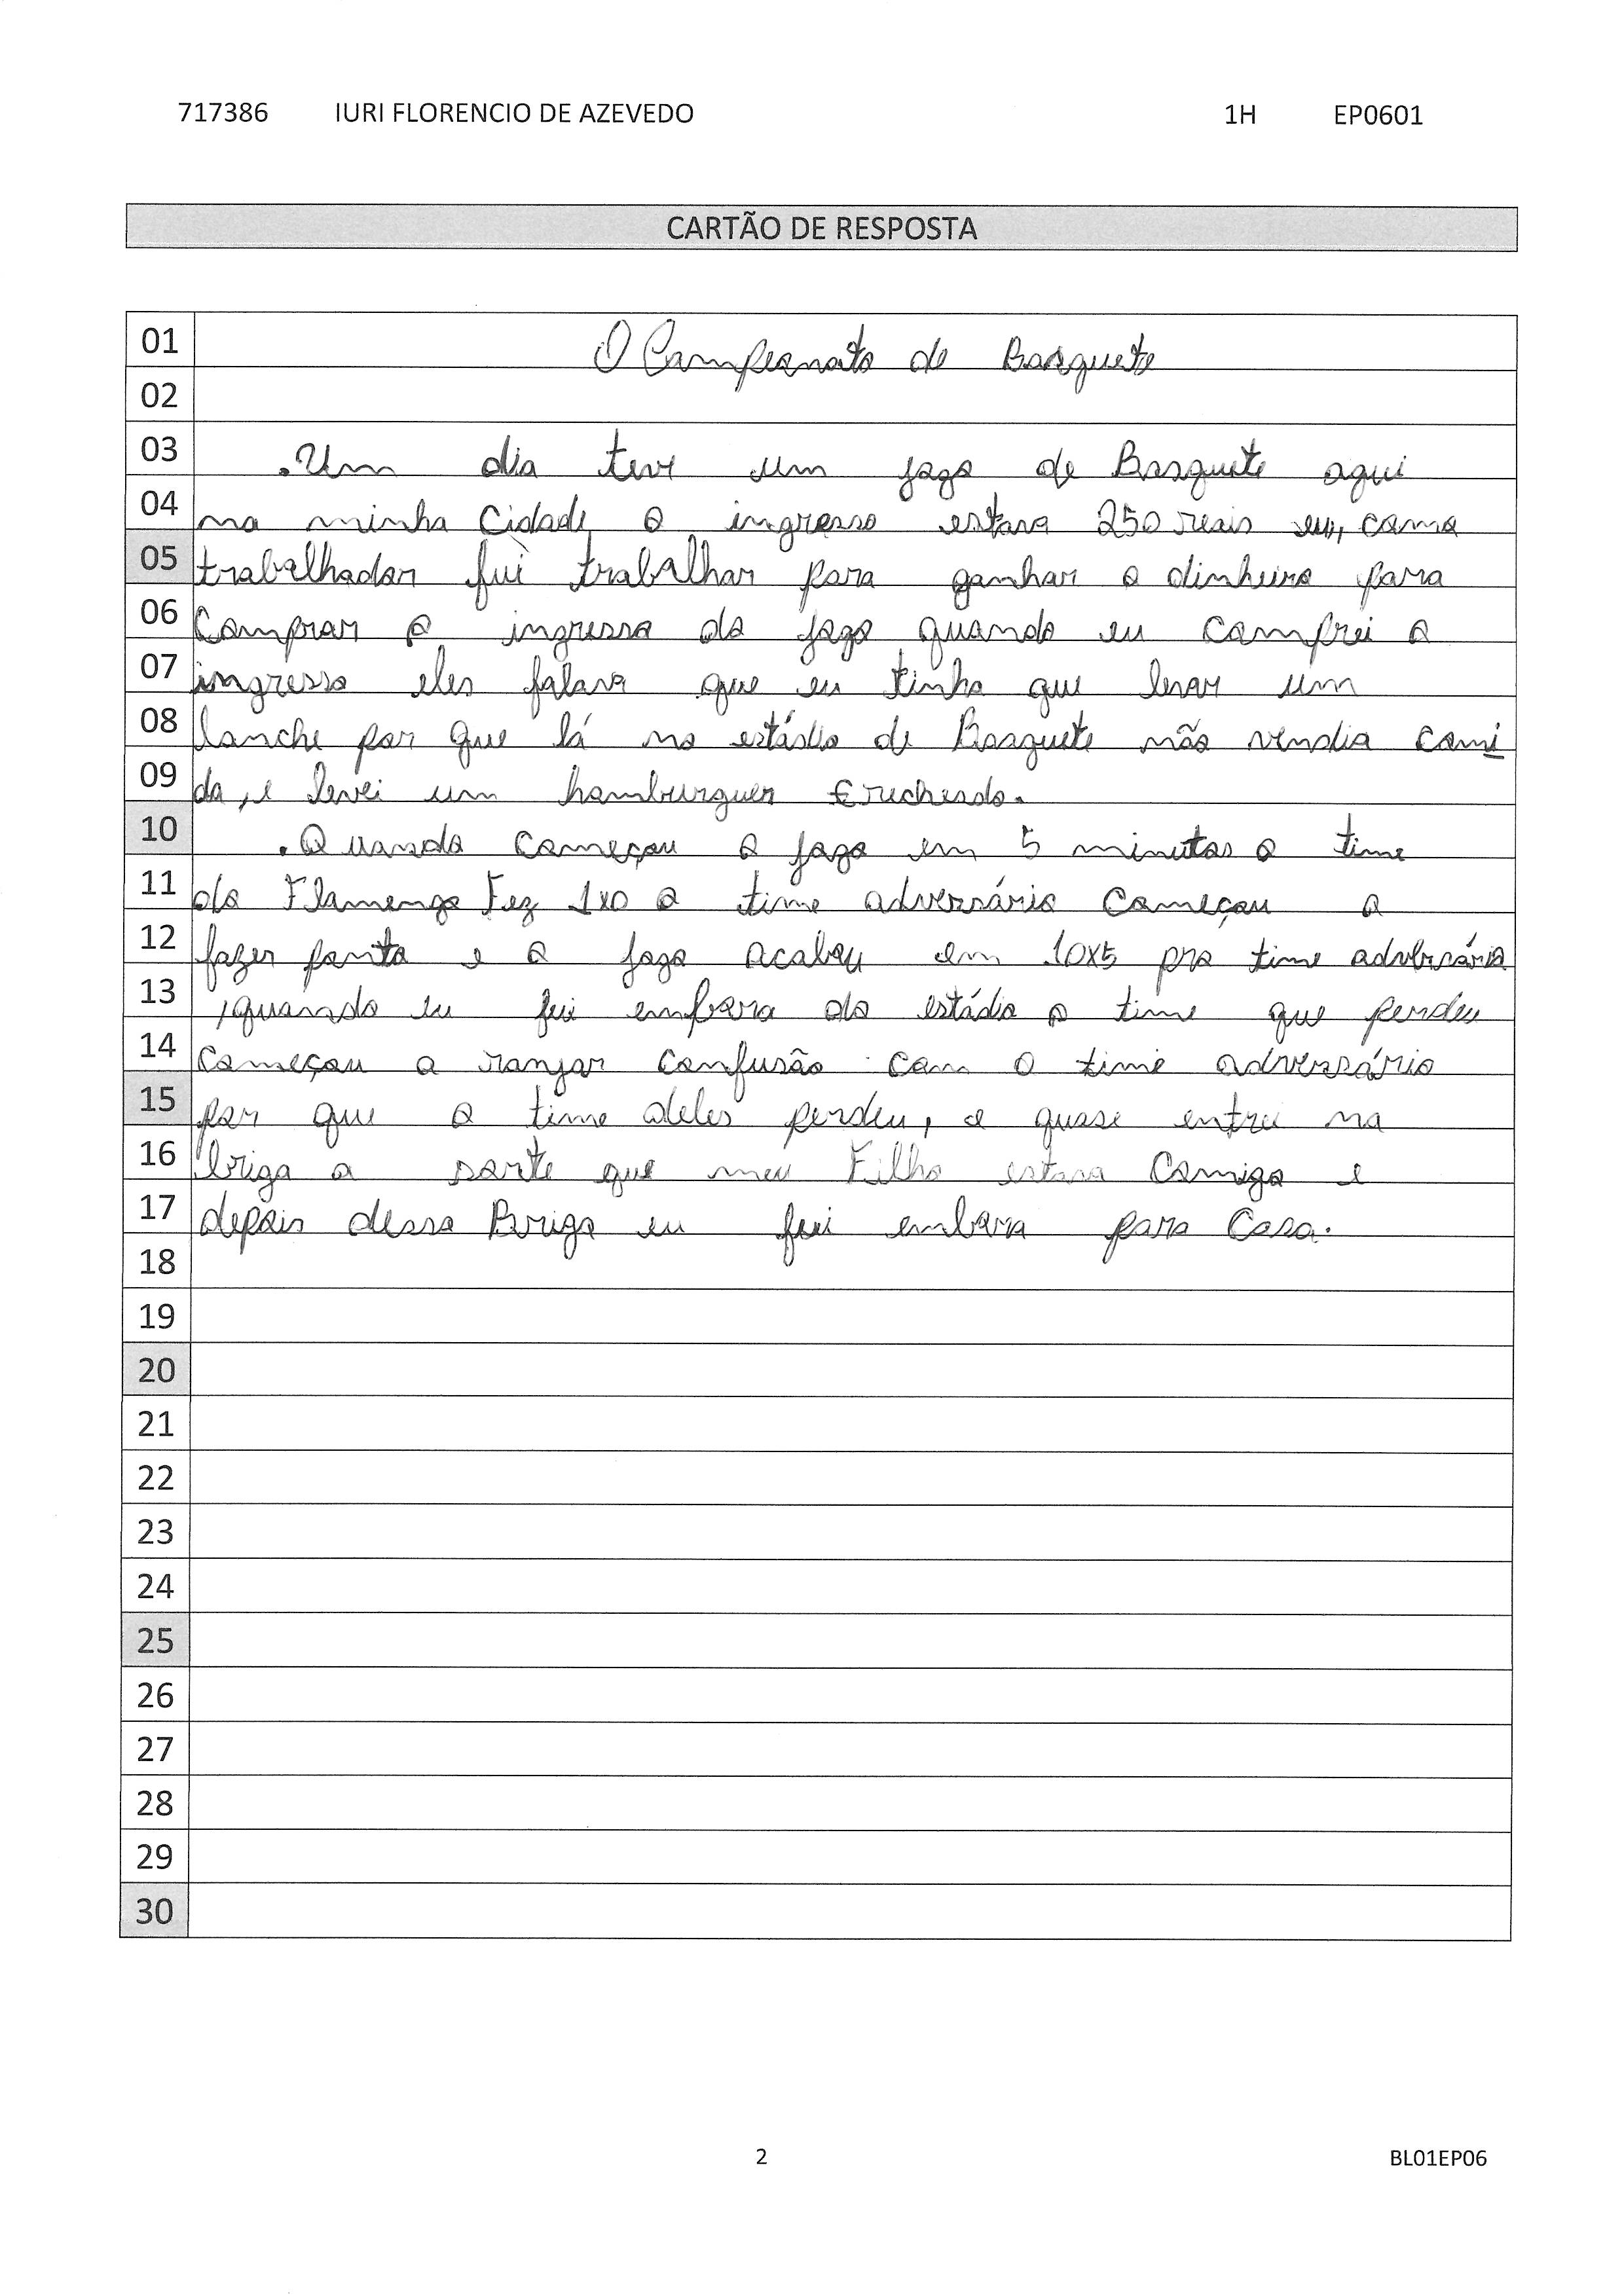 717386 IURI FLORENCIO DE AZEVEDO 1H EP0601
CARTÃO DE RESPOSTA
01 O Campeonato de Basquete
02
03 .Um dia teve um jogo de Basquete aqui
04 na minha Cidade, o ingresso estava 250 reais eu, como
05 trabalhador fui trabalhar para ganhar o dinheiro para
06 Comprar o ingresso do jogo quando eu comprei o
07 ingresso eles falava que eu tinha que levar um
08 lanche por que lá no estádio de Basquete não vendia comi
09 da, e levei um hamburguer
10 .Quando começou o jogo em 5 minutos o time
11 do Flamengo Fez 1x0 o time adversário começou a
12 fazer ponto e o jogo acabou em 10x5 pro time adversário
13 ,quando eu fui embora do estádio o time que perdeu
14 começou a ranjar confusão com o time adversário
15 por que o time deles perdeu, e quase entrei na
16 briga a sorte que meu Filho estava Comigo e
17 depois dessa Briga eu fui embora para Casa.
18
19
20
21
22
23
24
25
26
27
28
29
30
2 BL01EP06